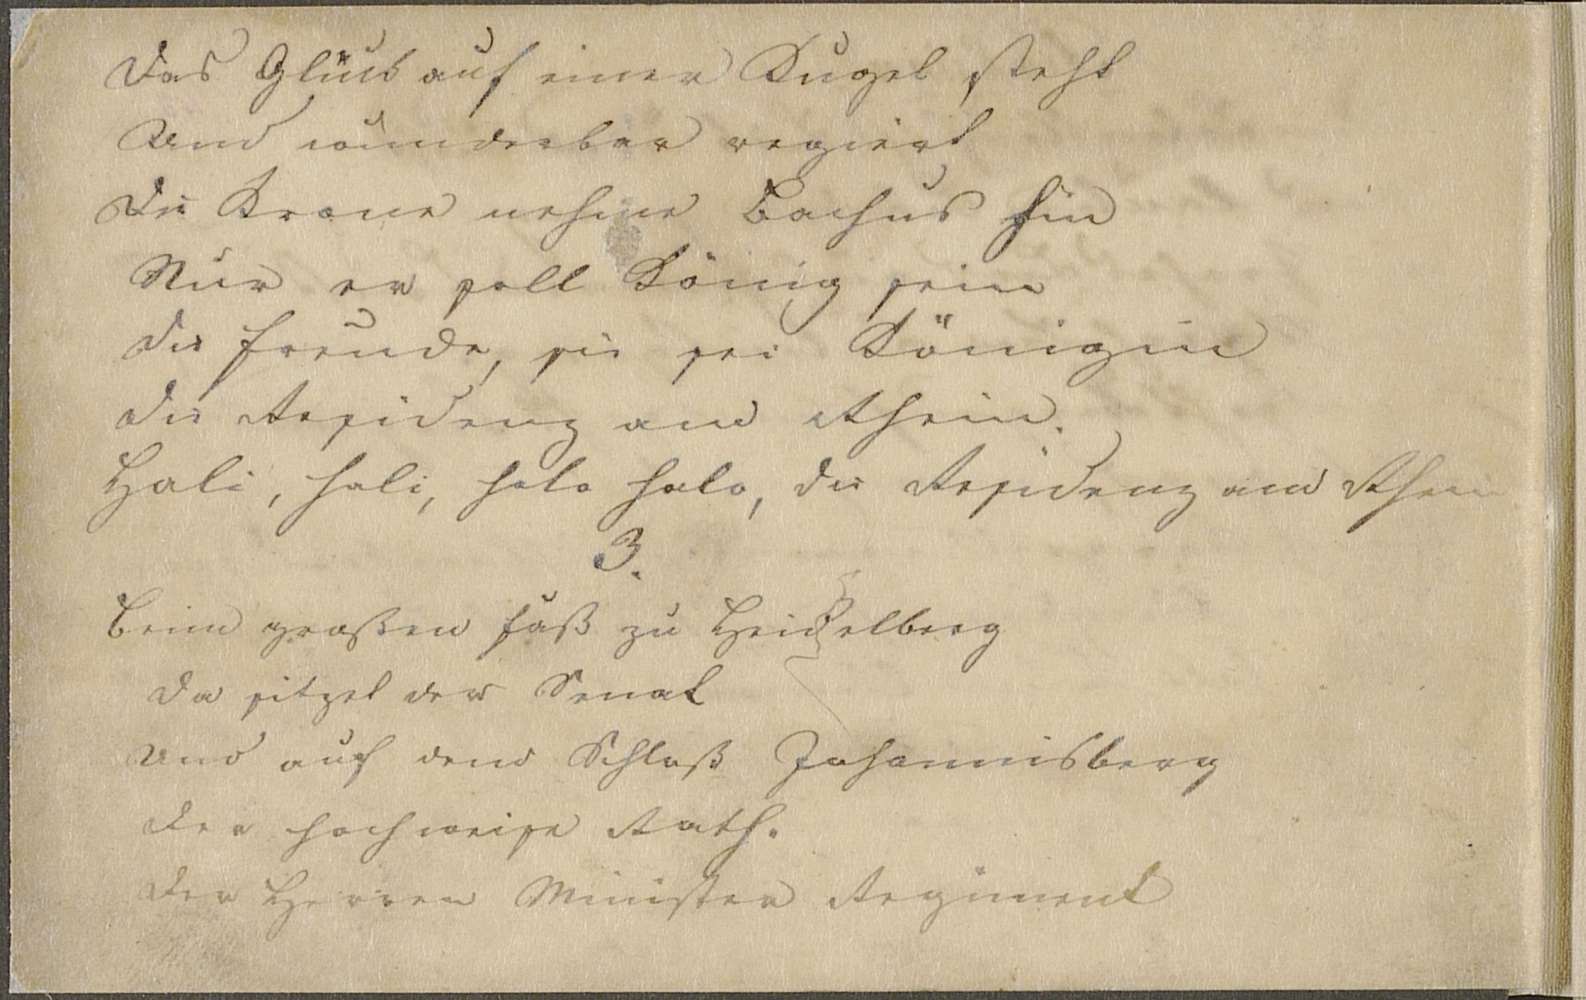 Das Glück auf einer Kugel steht
Und wunderbar regiert
Die Krone nehme Bachus hin
Nur er soll König sein
Die Freude, sie sei Königin
Die Residenz am Rhein.
Hali, hali, halo halo, die Residenz am Rhein
3.
Beim großen Faß zu Heidelberg
Da sitzet der Senat
Und auf dem Schloß Johannisberg
Der hochweise Rath.
Der Herren Minister Regiment